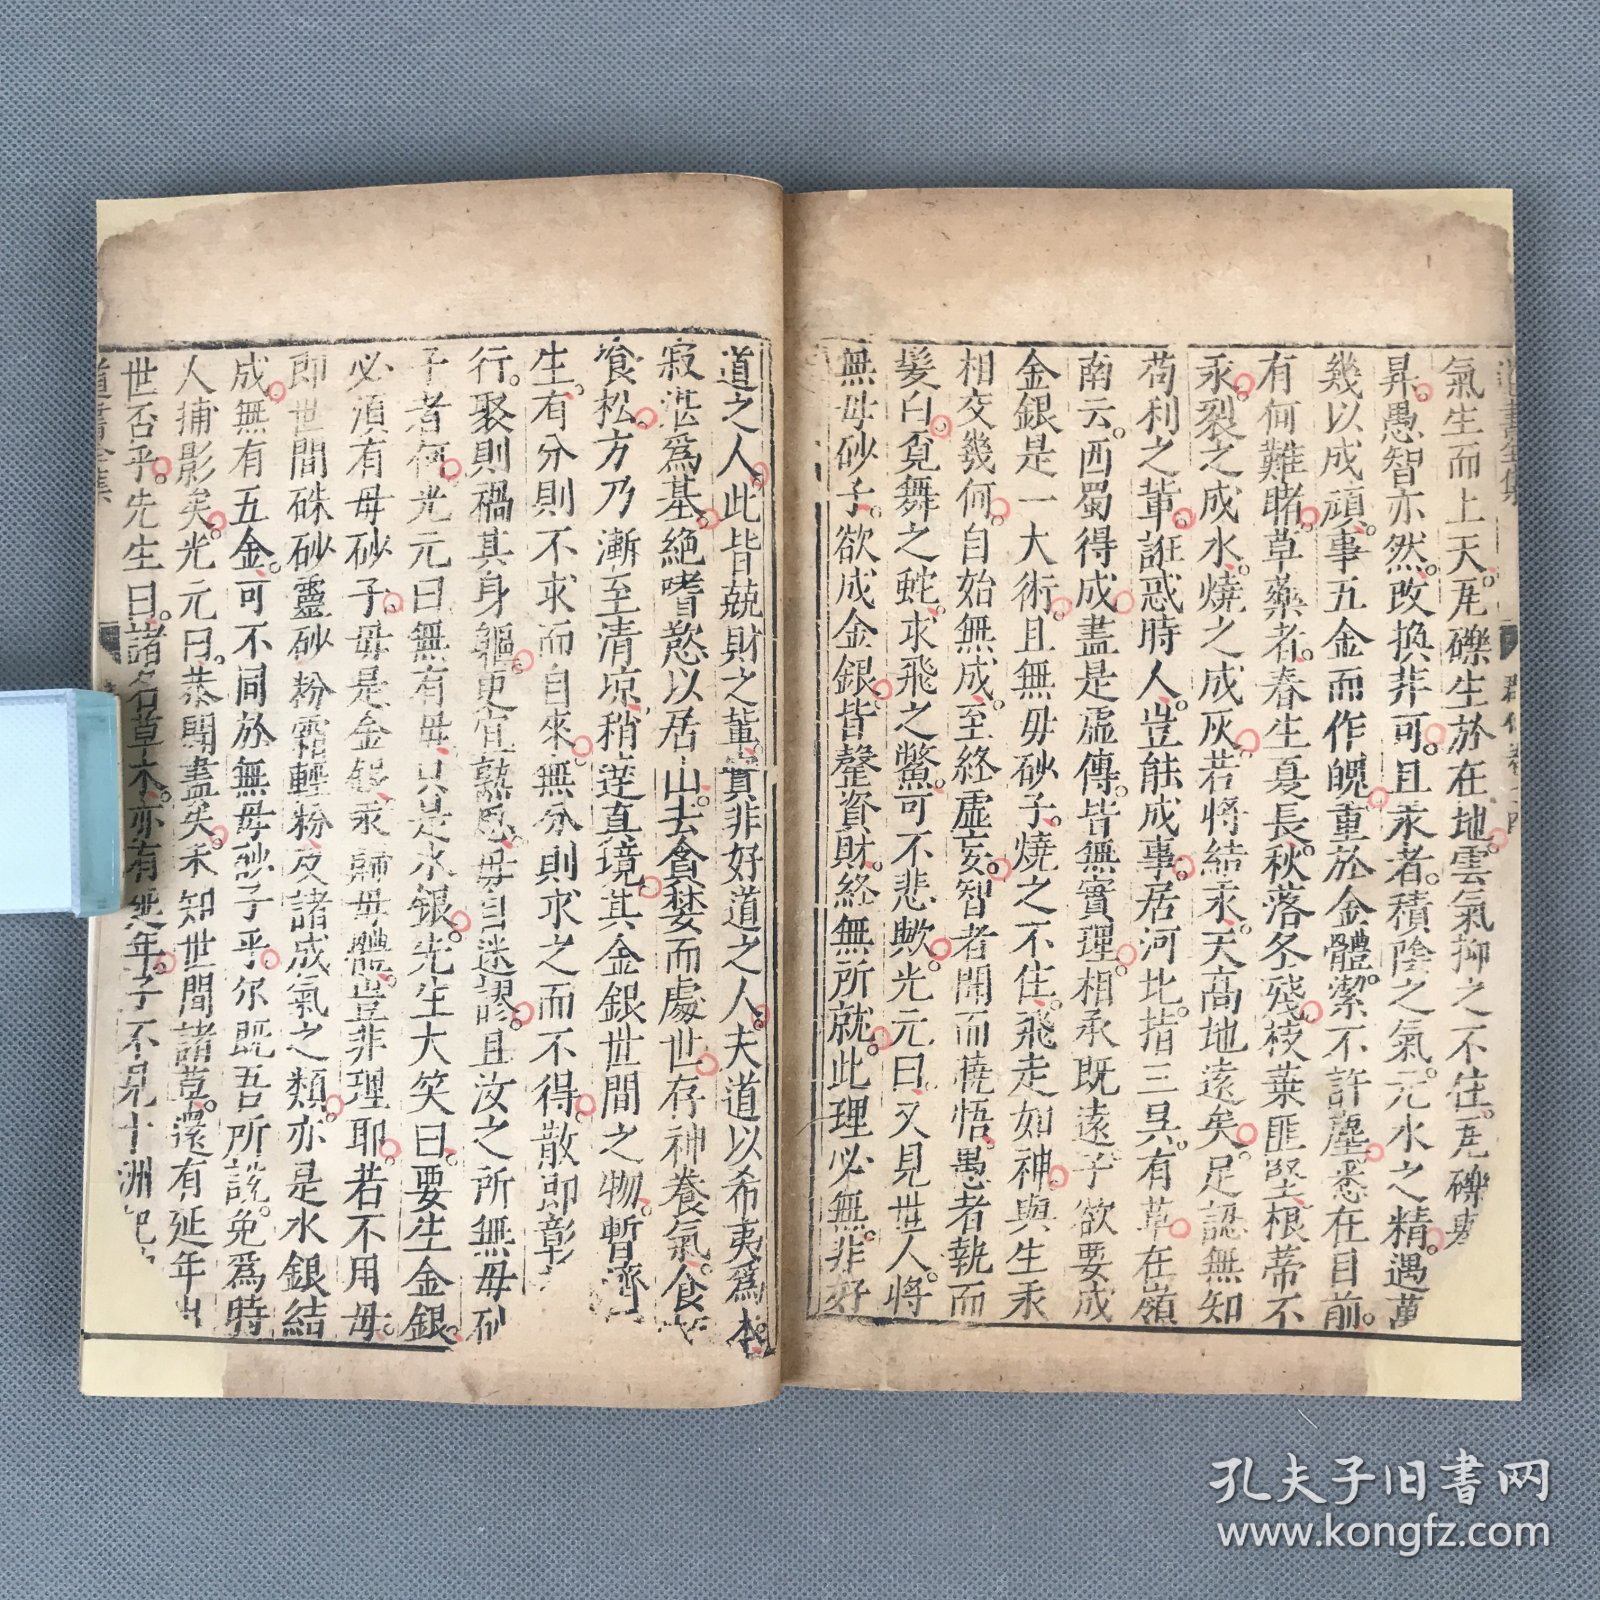 氣生而上天瓦礫生於在地雲氣抑之不住瓦礫
昇愚智亦然改換非可且汞者積陰之氣元水之精遇萬
幾以成頑事五金而作魄重於金體潔不許塵悉在目前
有何難睹草藥者春生夏長秋落冬殘枝葉匪堅根蒂不
汞裂之成水燒之成灰若將結汞天高地遠矣足認無知
苟利之輩誑惑時人豈能成事居河北指三吳有草在嶺
南云西蜀得成盡是虛傳皆無實理相承既遠子欲要成
金銀是一大術且無毋砂子燒之不住飛走如神與生汞
相交幾何自始無成至終虛妄智者聞而曉悟愚者執而
髮白覓舞之蛇求飛之鱉可不悲歟光元曰又見世人將
無毋砂子欲成金銀皆罄資財終無所就此理必無非好
道之人此皆兢財之輩實非好道之人夫道以希夷爲本
寂湛爲基絶嗜慾以居山去貪婪而處世存神養氣食
飡松方乃漸至清凉稍達真境其金銀世間之物暫濟
生有分則不求而自來無分則求之而不得散即彰
行聚則禍其身軀更宜熟思毋自迷謬且汝之所無毋砂
子者何光元曰無有毋只是水銀先生大笑曰要生金銀
必須有毋砂子毋是金銀汞歸毋體豈非理耶若不用毋
即世間硃砂靈砂粉霜輕粉及諸成氣之類亦是水銀結
成無有五金可不同於無毋砂子乎尔既吾所說免爲時
人捕影矣光元曰恭聞盡矣未知世間諸荳還有延年出
世否乎先生曰諸名草木亦有延年子不見十洲記
道書全集